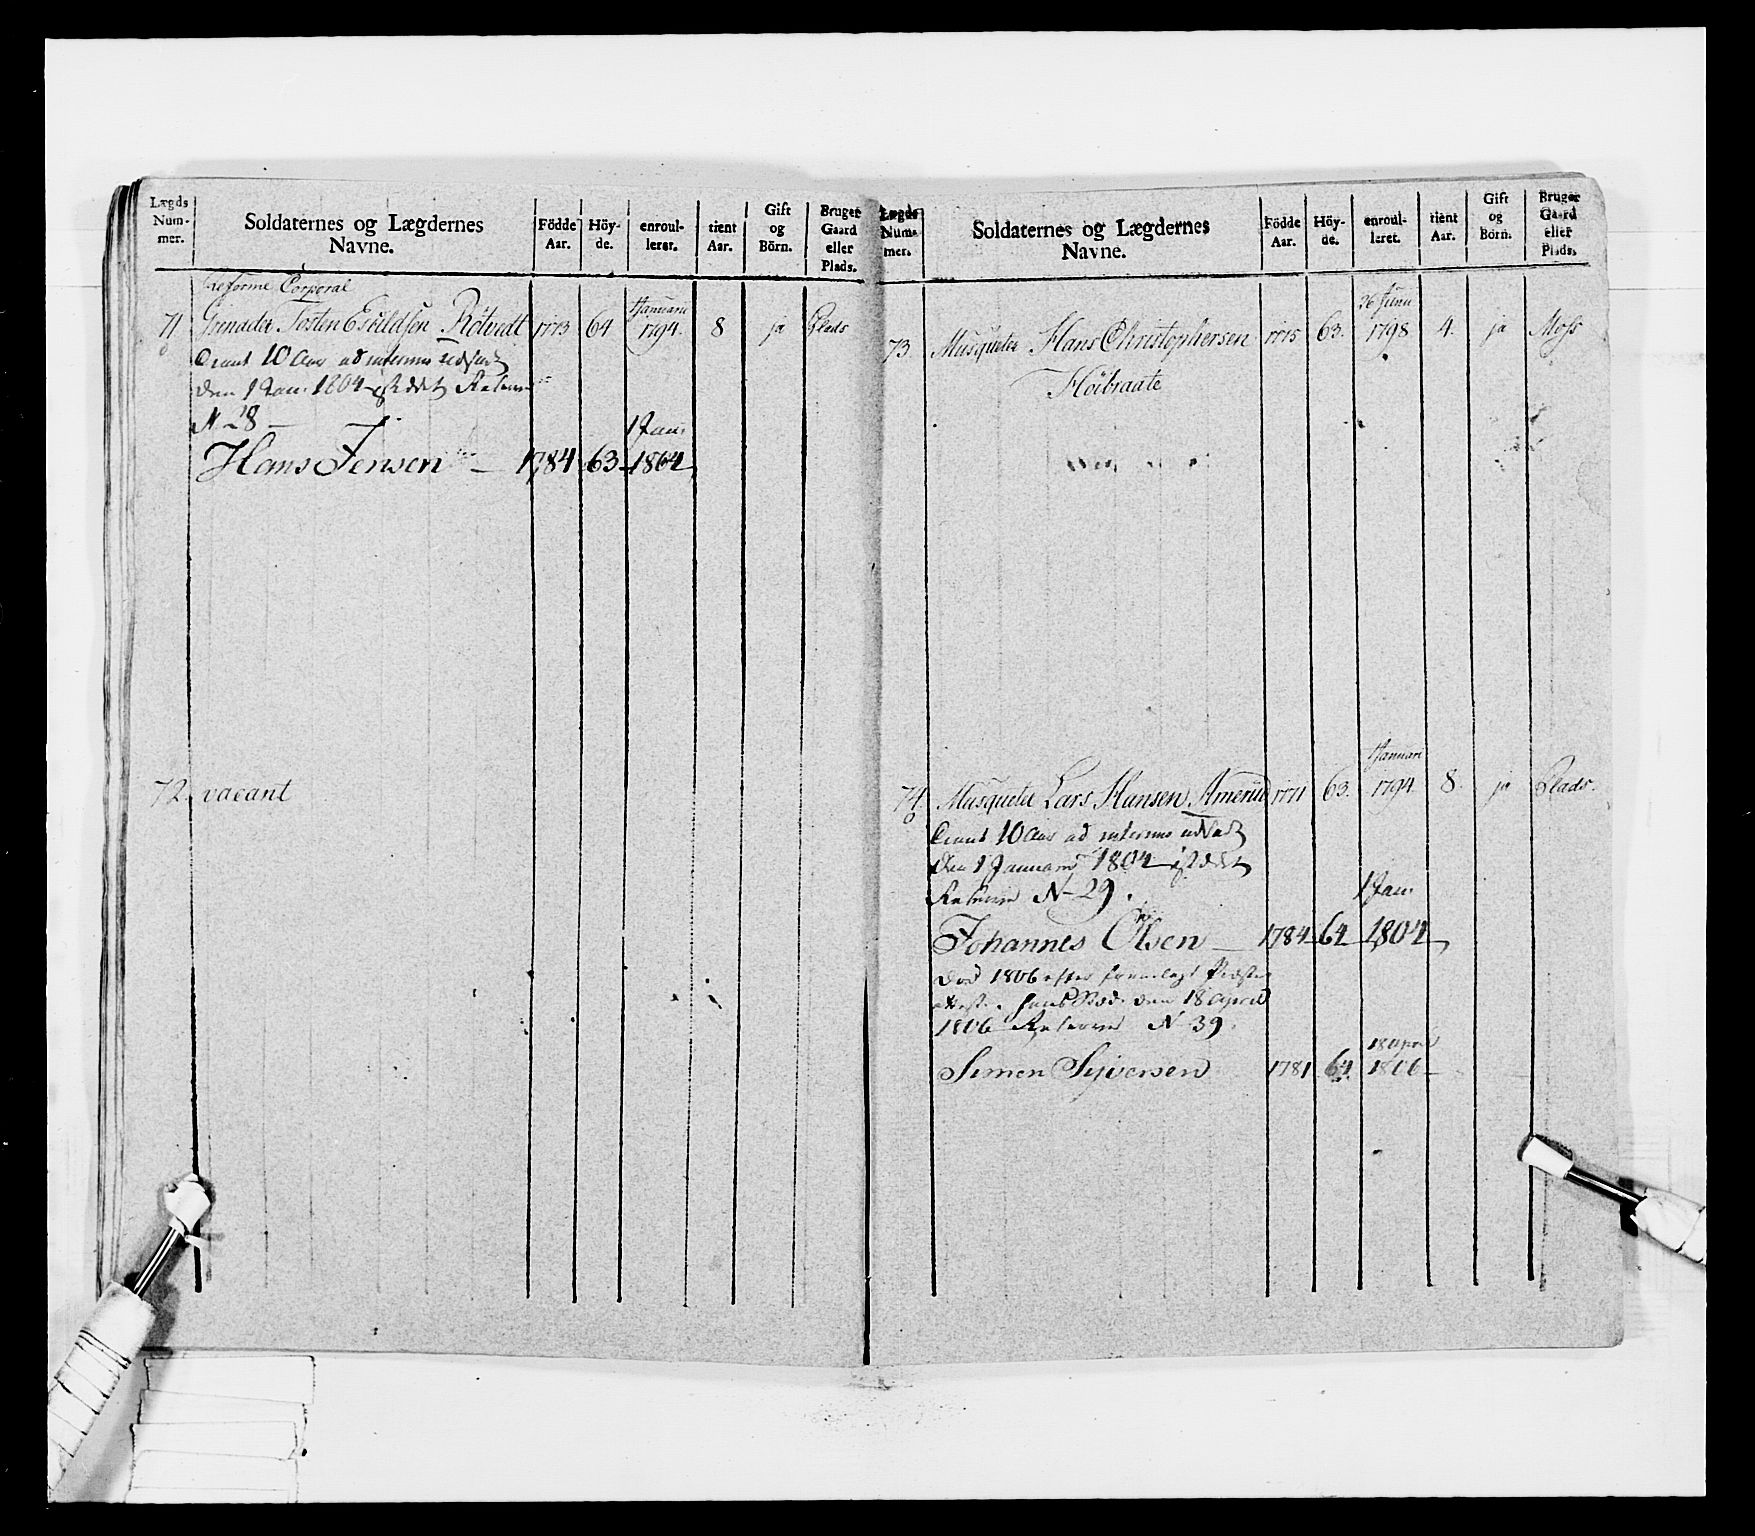 Lægds
Num-
mer.
Soldaternes og Lægdernes
Navne.
Födde
Aar.
Höy-
de.
enroul-
leret.
tient
Aar.
Gift
og
Börn.
Bruger
Gaard
eller
Plads.
Reforme Corporal
71 Grenader Tosten Eskildsen Rötvedt 1773 64 1 Januarii 1794. 8 ja Plads
tient 10 Aar ad interims udsat
den 1 Jan. 1804
N 28
Hans Jensen 1784 63 1 Jan. 1804
72. vacant
Lægds
Num-
mer.
Soldaternes og Lægdernes
Navne.
Födde
Aar.
Höy-
de.
enroul-
leret.
tient
Aar.
Gift
og
Börn.
Bruger
Gaard
eller
Plads.
73 Musqueter Hans Christophersen 1775 63. 26 Junii 1798 4. ja Moss
Höibraate
74. Musqueter Lars Hansen Amerud 1771 63. 1 Januari 1794 8. ja Plads.
tient 10 Aar ad interims udsat
den 1 Januarii 1804
N 29.
Johannes Olsen 1784 64 1 Jan. 1804
död 1806 efter
den 18 April
1806 N 39.
Simen Syversen 1781 64 18 April 1806